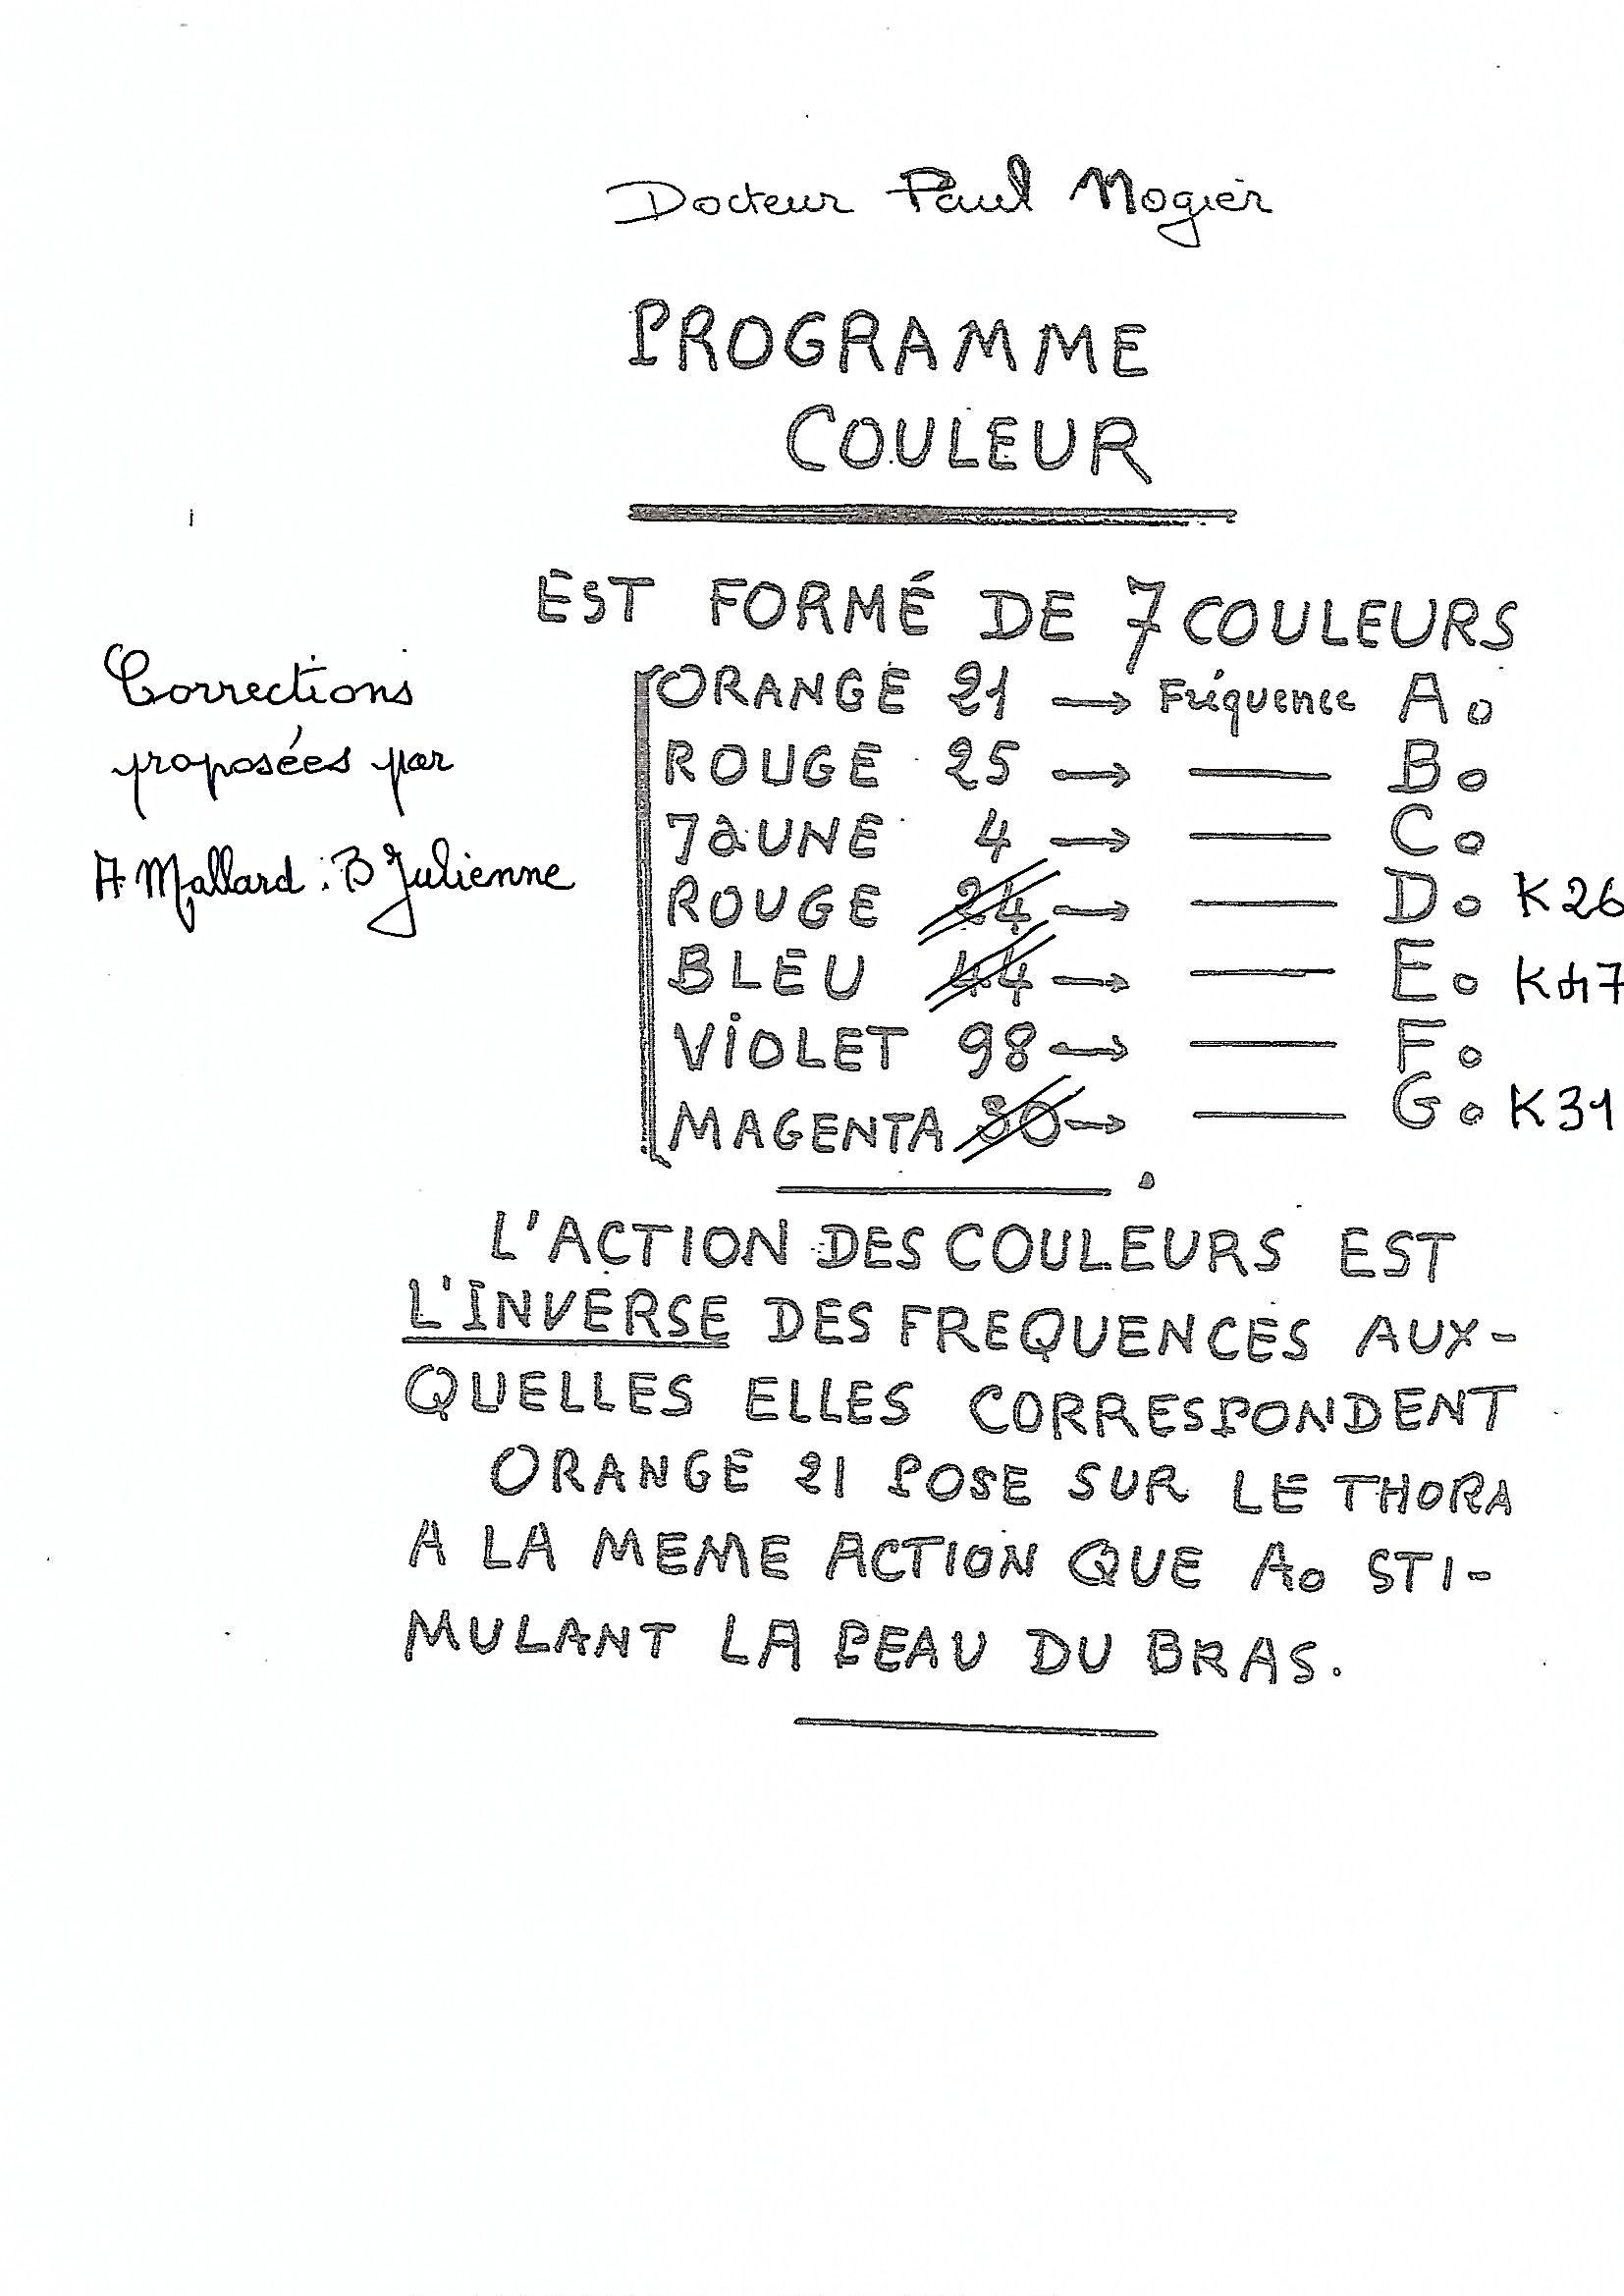 Docteur Paul Nogier
PROGRAMME
COULEUR
EST FORMÉ DE 7 COULEURS
Corrections
proposées par
A Mallard : B Julienne
ORANGE 21 → Fréquence Ao
ROUGE 25 → — Bo
JAUNE 4 → — Co
ROUGE 24 → — Do K26
BLEU 44 → — Eo K47
VIOLET 98 → — Fo
MAGENTA 30 → — Go K31
L'ACTION DES COULEURS EST
L'INVERSE DES FREQUENCES AUX-
QUELLES ELLES CORRESPONDENT
ORANGE 21 POSE SUR LE THORA
A LA MEME ACTION QUE Ao STI-
MULANT LA PEAU DU BRAS.